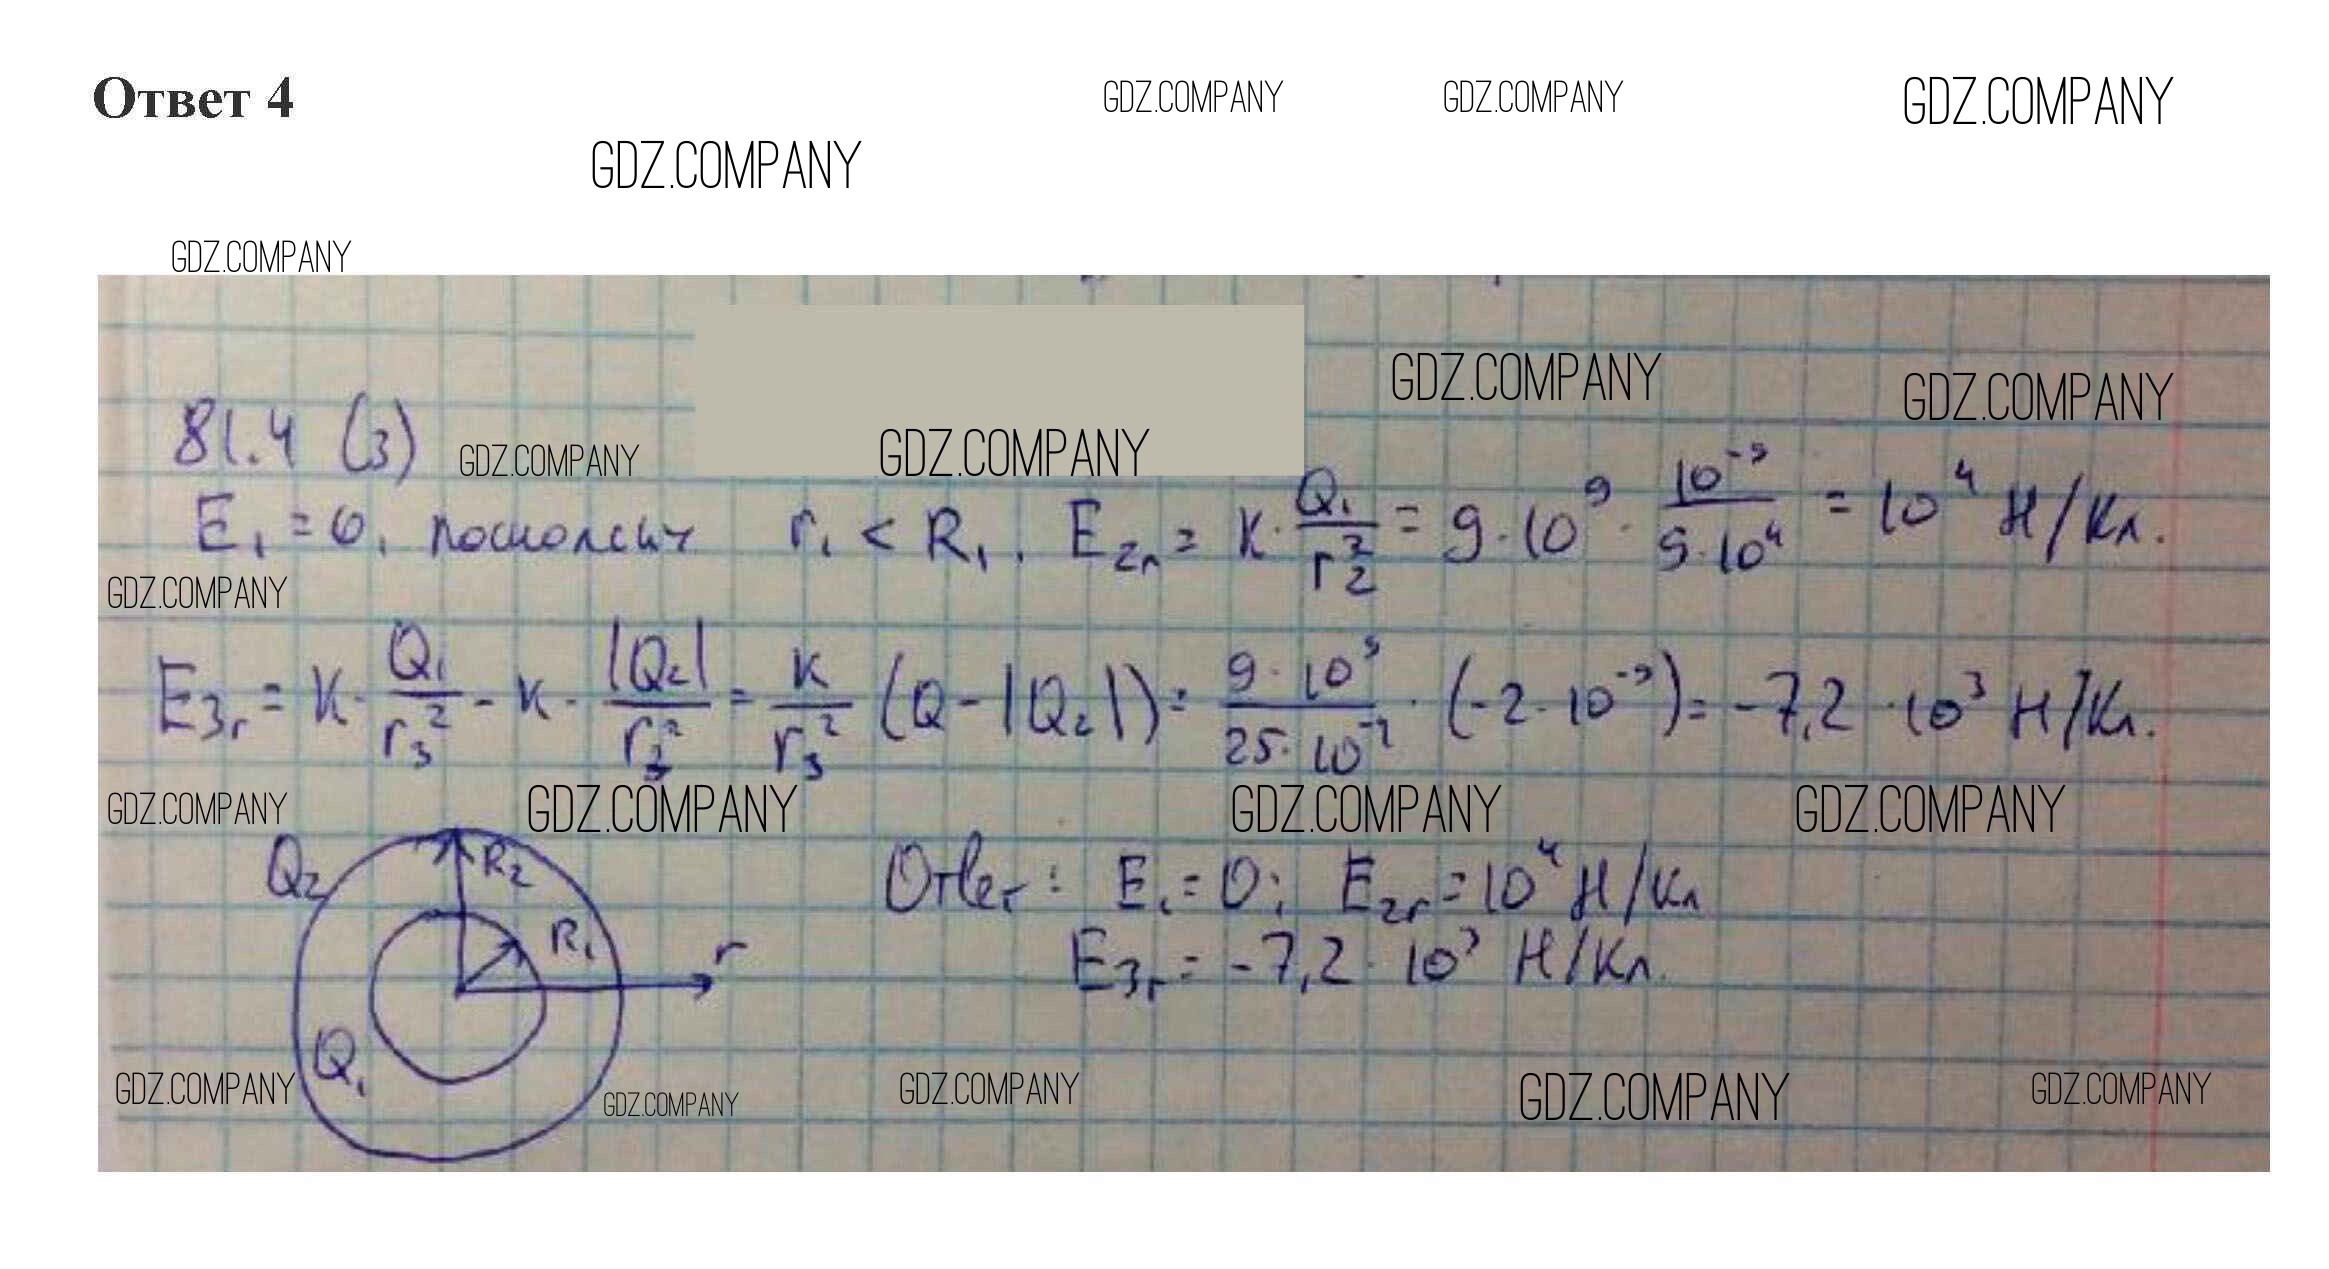 Ответ 4
GDZ.COMPANY GDZ.COMPANY GDZ.COMPANY
GDZ.COMPANY
GDZ.COMPANY
GDZ.COMPANY GDZ.COMPANY
81.4 (3) GDZ.COMPANY GDZ.COMPANY
E₁ = 0, поскольку r₁ < R₁. E₂ᵣ = K · Q₁/r₂² = 9·10⁹ · 10⁻⁹/9·10⁴ = 10⁴ Н/Кл.
GDZ.COMPANY
E₃ᵣ = K · Q₁/r₃² - K · |Q₂|/r₃² = K/r₃² (Q - |Q₂|) = 9·10⁹/25·10⁻² · (-2·10⁻⁹) = -7,2 · 10³ Н/Кл.
GDZ.COMPANY GDZ.COMPANY GDZ.COMPANY GDZ.COMPANY
Q₂ R₂
R₁ r
Q₁
Ответ: E₁ = 0; E₂ᵣ = 10⁴ Н/Кл
E₃ᵣ = -7,2 · 10³ Н/Кл.
GDZ.COMPANY GDZ.COMPANY GDZ.COMPANY GDZ.COMPANY GDZ.COMPANY